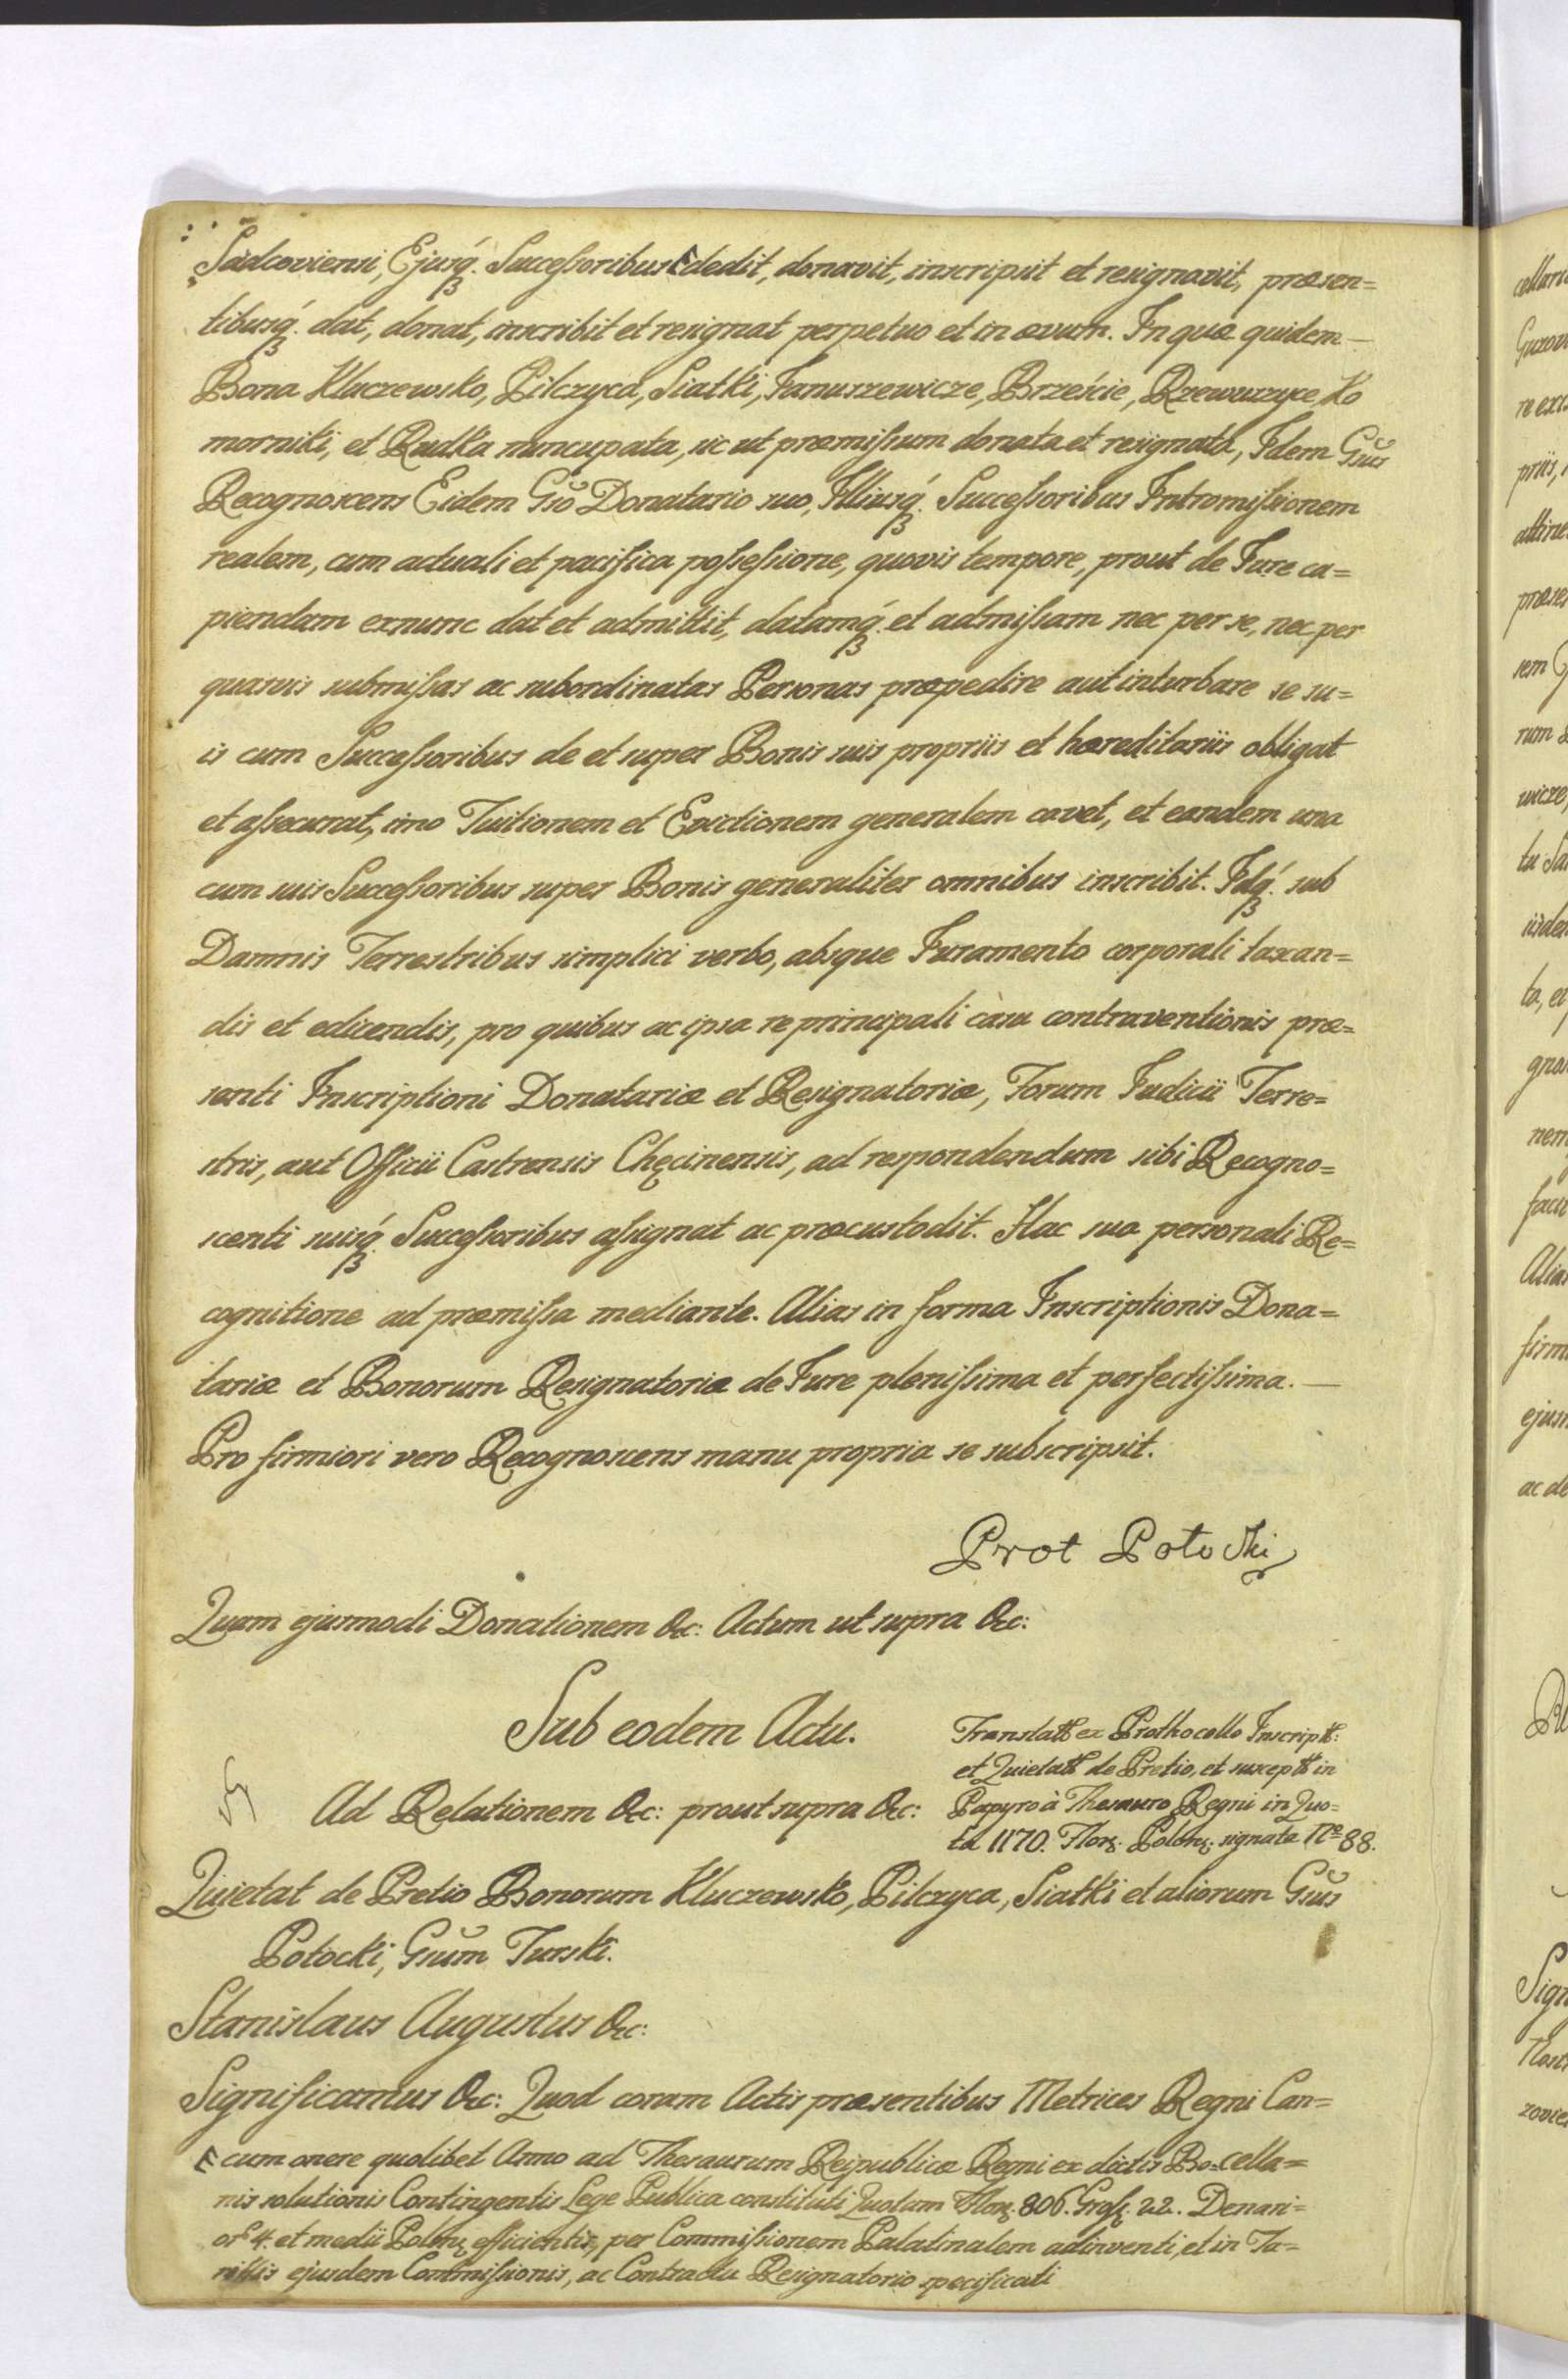 Sadcoviensi, Ejusq́ꝫ. Succeſsoribus Ⱶ dedit, donavit, inscripsit et resignavit, præsen=
tibusq́ꝫ. dat, donat, inscribit et resignat perpetuo et in ævum. In quæ quidem —
Bona Kluczewsko, Pilczyca, Siatki, Januszewicze, Brzeście, Rzewuszyce, Ko
morniki, et Rudka nuncupata, sic ut præmiſsum donata et resignata, Idem Gñsus
Recognoscens Eidem Gso Donatario suo, Illiusq́ꝫ. Succeſsoribus Intromiſsionem
realem, cum actuali et pacifica poſseſsione, quovis tempore, prout de Jure ca=
piendam exnunc dat et admittit, datamq́ꝫ. et admiſsam nec per se, nec per
quasvis submiſsas ac subordinatas Personas præpedire aut inturbare se su=
is cum Succeſsoribus de et super Bonis suis propriis et hæreditariis obligat
et aſsecurat, imo Tuitionem et Evictionem generalem cavet, et eandem una
cum suis Succeſsoribus super Bonis generaliter omnibus inscribit. Idq́ꝫ. sub
Damnis Terrestribus simplici verbo, absque Juramento corporali taxan=
dis et edicendis, pro quibus ac ipsa re principali casu contraventionis præ=
senti Inscriptioni Donatariæ et Resignatoriæ, Forum Judicii Terre=
stris, aut Officii Castrensis Chęcinensis, ad respondendum sibi Recogno=
scenti suisq́ꝫ Succeſsoribus aſsignat ac præcustodit. Hac sua personali Re=
cognitione ad præmiſsa mediante. Alias in forma Inscriptionis Dona=
tariæ et Bonorum Resignatoriæ de Jure pleniſsima et perfectiſsima. —
Pro firmiori vero Recognoscens manu propria se subscripsit.
Prot Potocki
Quam ejusmodi Donationem &c: Actum ut supra &c:
Sub eodem Actu.
Translatt ex Prothocollo Inscriptt:
et Quietatt de Pretio, et susceptt in
Papyro à Thesauro Regni in Quo=
ta 1170. Florꝫ. Polonꝫ. signata No 88.
Ad Relationem &c: prout supra &c:
Quietat de Pretio Bonorum Kluczewsko, Pilczyca, Siatki et aliorum Gsus
Potocki, Gsum Turski.
Stanislaus Augustus &c:
Significamus &c: Quod coram Actis præsentibus Metrices Regni Can=
cella=
Ⱶ cum onere quolibet Anno ad Thesaurum Reipublicæ Regni ex dictis Bo=
nis solutionis Contingentis Lege Publica constituti Quotam Florꝫ. 806. Groſꝫ. 22. Denari=
or 4. et medii Polonꝫ efficientis, per Commiſsionem Palatinalem adinventi, et in Ta=
rifis ejusdem Commiſsionis, ac Contractu Resignatorio specificati